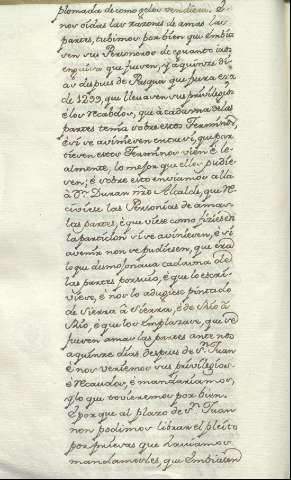 plomada de como gelos vendiera. E
nos oidas las razones de amas las
partes, tubimos por bien que embia
sen sus Personeros de quanto
que fuesen, a quince di
as despues de Pasqua que fuera era
de 1299, que llevasen sus privilegios
e los recabdos, que à cadauna de las
partes tenia sobre estos Terminos,
è si se aviniesen entre si, que par
tiesen estos Terminos bien è le
almente, lo mejor que ellos pudie
sen; è sobre esto enviamos allà
à Dn. Duran mio Alcalde, que re
civiese las Personerias de amas
las partes, è que viese como ficiesen
la particion si se aviniesen, è si
avenir non se pudiesen, que
lo que demostrava cadauna de
las partes por suio, è que lo escri
viese, è nos lo adugiese pintado
de Sierra à Sierra, è de Rio à
Rio, è que los emplazase, que
fuesen amas las partes ante nos
à quince dias despues de Sn. Juan
è nos veriemos sus privilegios
è recaudos, è mandariamos,
lo que toviesemos por bien.
E por que al plazo de Sn. Juan
non podimos librar el pleito
por priesas que haviamos
mandamosles, que embiasen